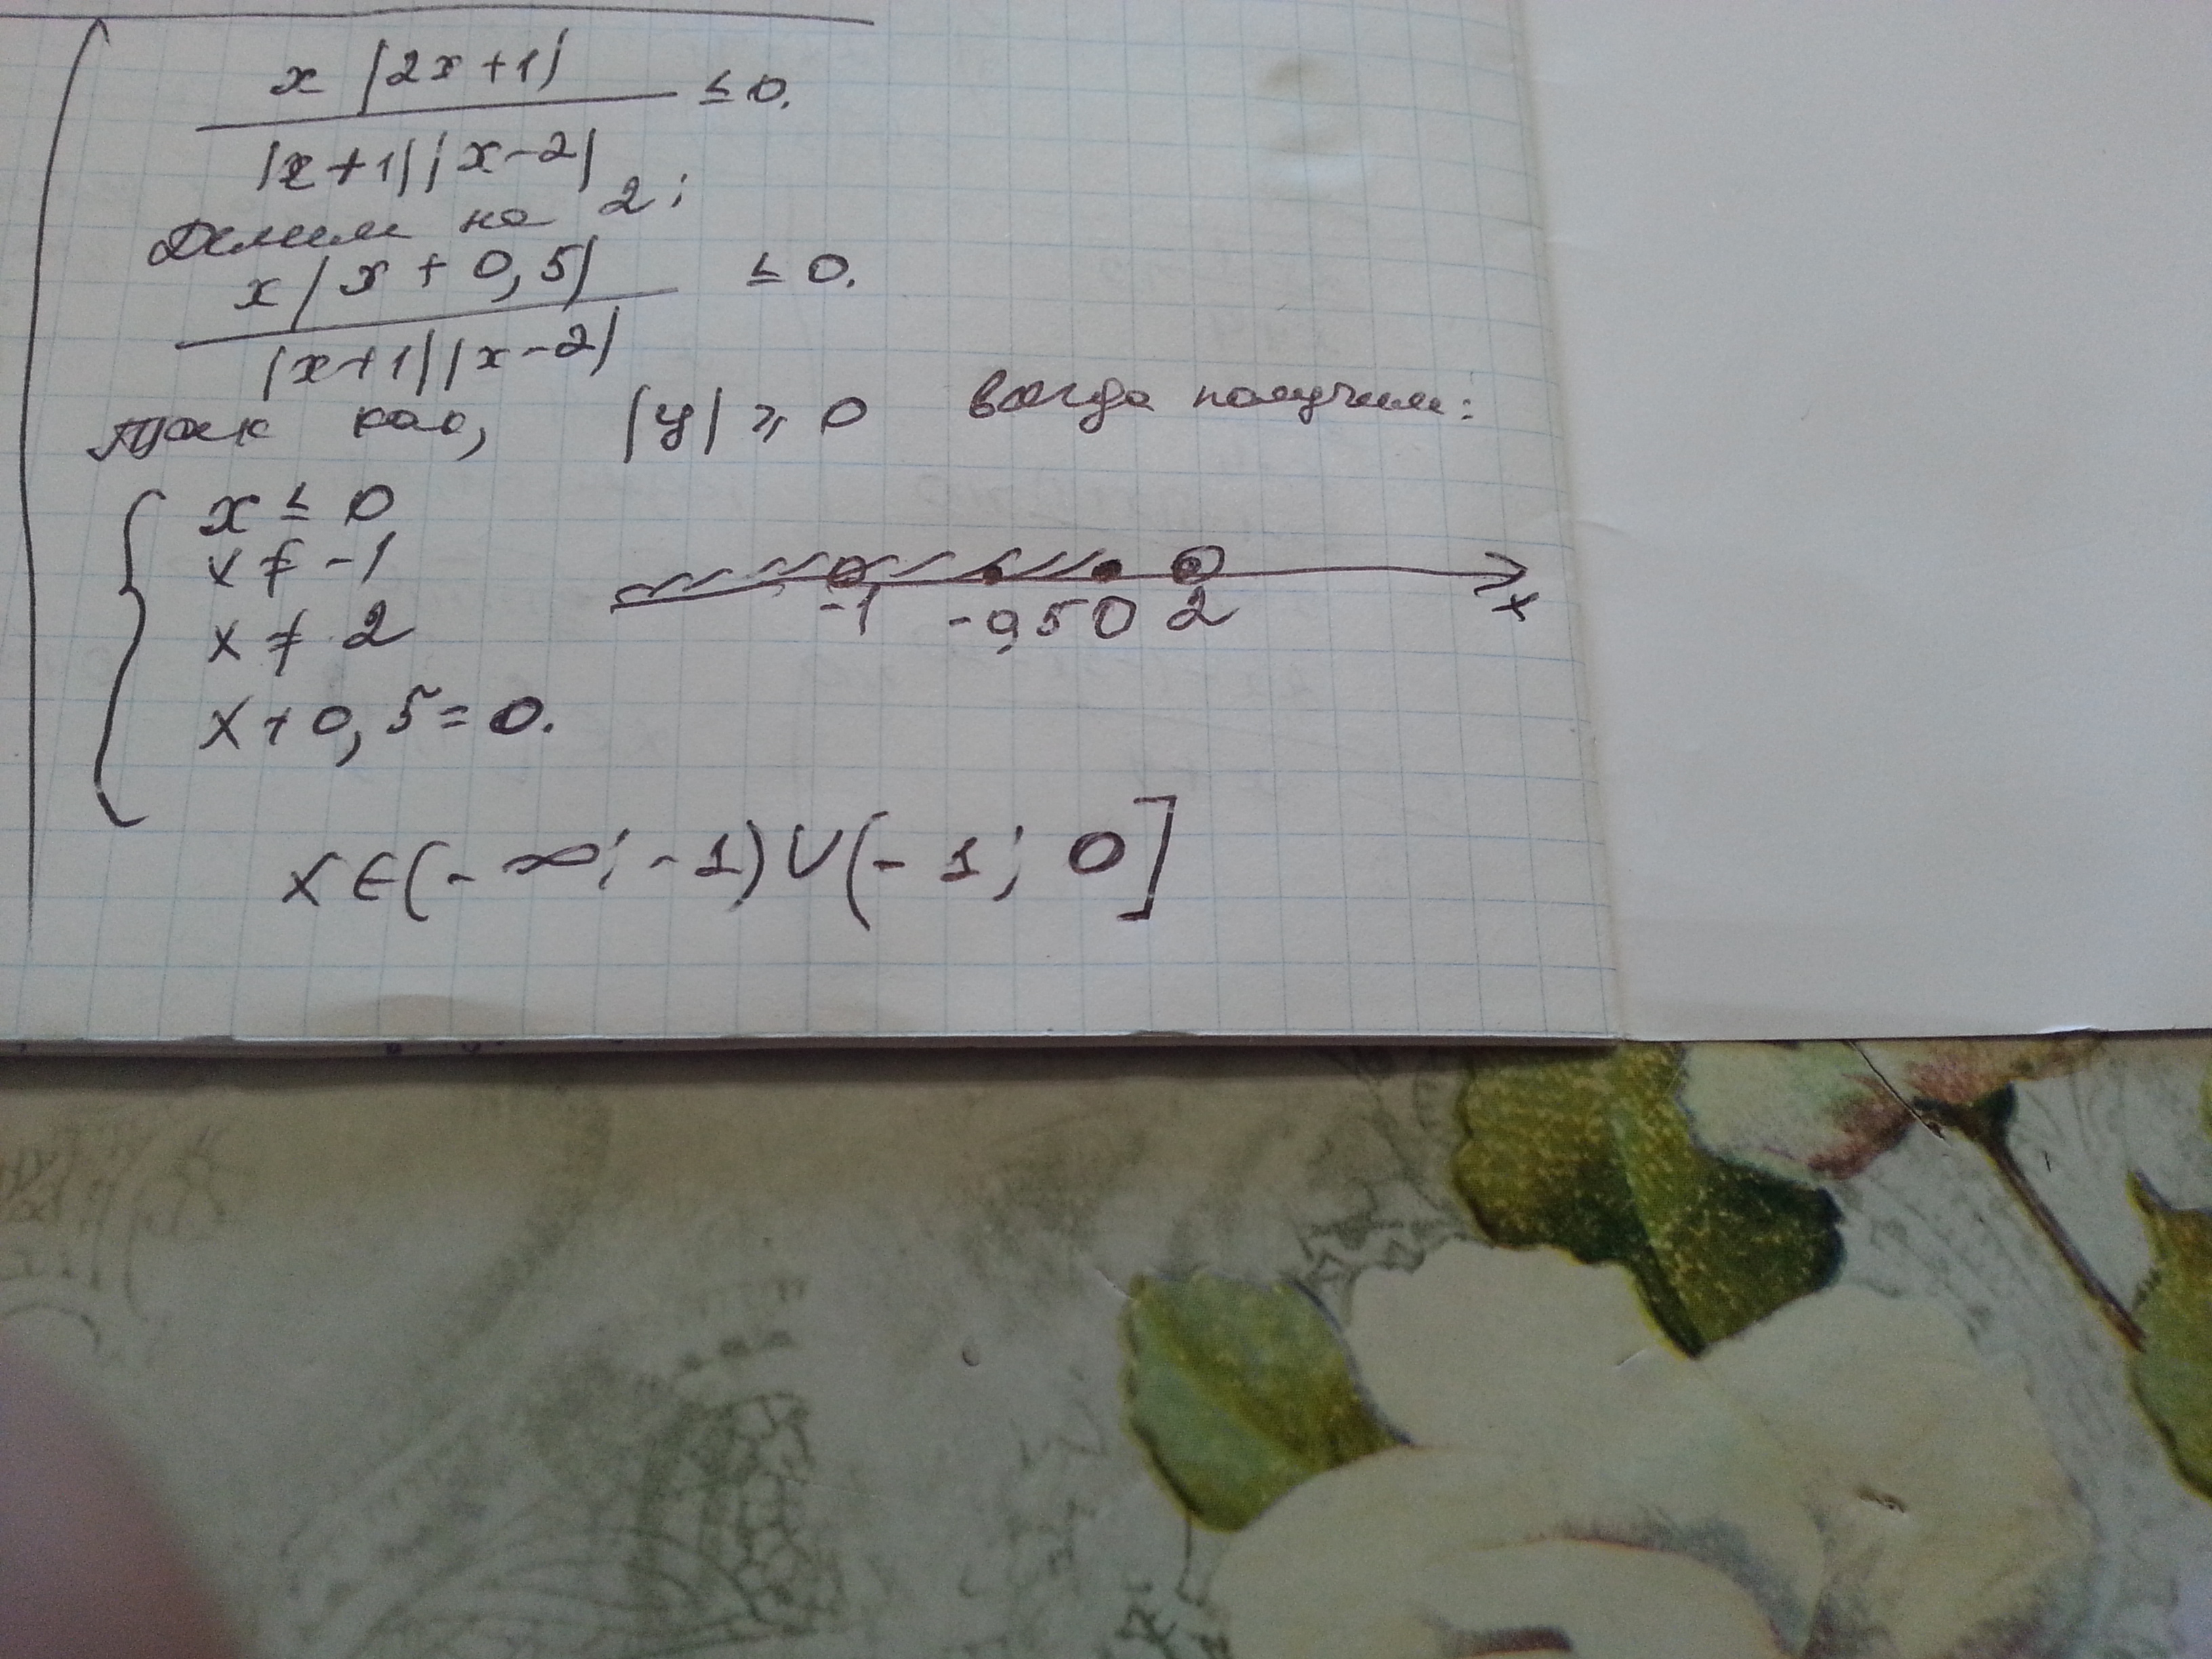 x |2x+1| ≤ 0.
|x+1||x-2|
Делим на 2;
x|x + 0,5| ≤ 0.
|x+1||x-2|
так как, |y| ≥ 0 всегда получим:
x ≤ 0
x ≠ -1
x ≠ 2
x + 0,5 = 0.
-1 -0,5 0 2 x
x ∈ (-∞; -1) ∪ (-1; 0]